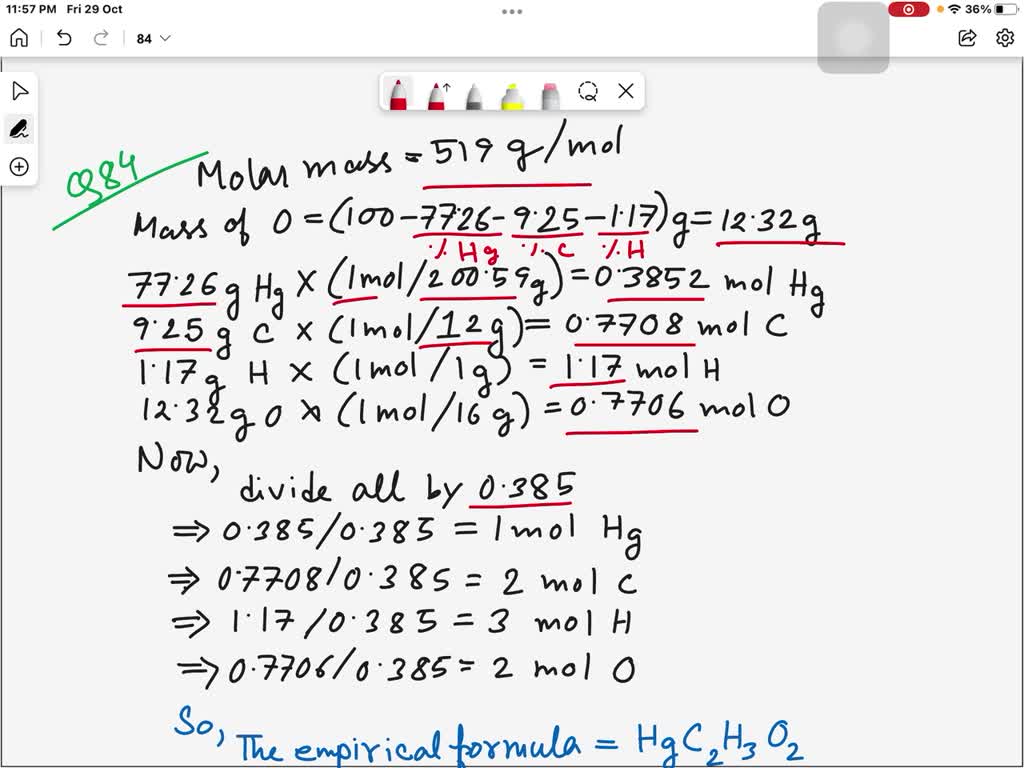 11:57 PM Fri 29 Oct
36%
84
Q84
Molar mass = 519 g/mol
Mass of O = (100 - 77.26 - 9.25 - 1.17) g = 12.32 g
% Hg % C % H
77.26 g Hg × (1mol/200.59g) = 0.3852 mol Hg
9.25 g C × (1mol/12g) = 0.7708 mol C
1.17 g H × (1mol/1g) = 1.17 mol H
12.32 g O × (1mol/16 g) = 0.7706 mol O
Now,
divide all by 0.385
⇒ 0.385/0.385 = 1mol Hg
⇒ 0.7708/0.385 = 2 mol C
⇒ 1.17/0.385 = 3 mol H
⇒ 0.7706/0.385 = 2 mol O
So, The empirical formula = HgC₂H₃O₂